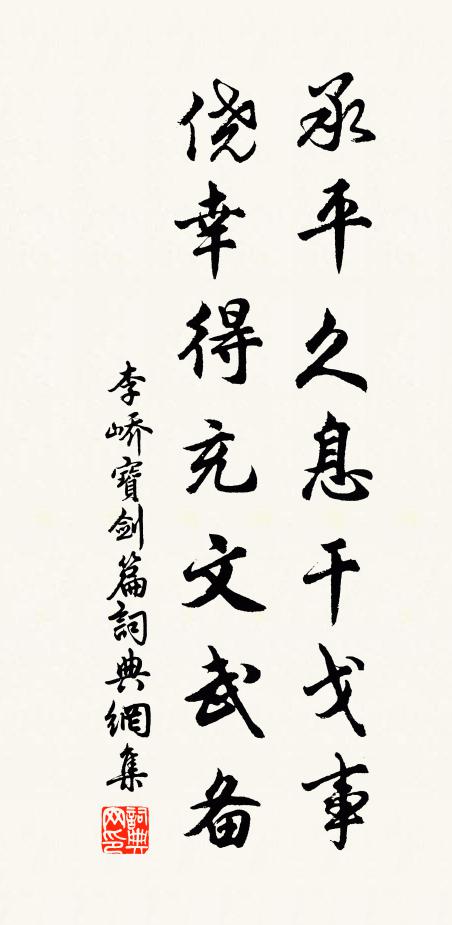 承平久息干戈事
侥幸得充文武备
李嶠寶劍篇詞典網集
詞典网印